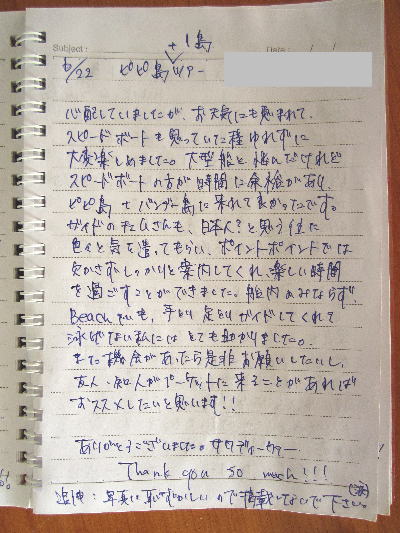 Subject :
Date : / /
+1島
6/22 ピピ島ツアー
心配していましたが、お天気にも恵まれて、
スピードボートも思っていた程ゆれずに
大変楽しめました。大型船と悩んだけれど
スピードボートの方が時間に余裕があり、
ピピ島+バンブー島に来れて良かったです。
ガイドの さんも、日本人?と思う位に
色々と気を遣ってもらい、ポイントポイントでは
欠かさずしっかりと案内してくれ、楽しい時間
を過ごすことができました。船内のみならず
Beachでも、手とり足とりガイドしてくれて
泳げない私にはとても助かりました。
また機会があったら是非お願いしたいし、
友人・知人がプーケットに来ることがあれば
おススメしたいと思います!!
ありがとうございました。サワディーカー
Thank you so much!!!
追伸:写真は恥ずかしいので掲載しないで下さい。(涙)